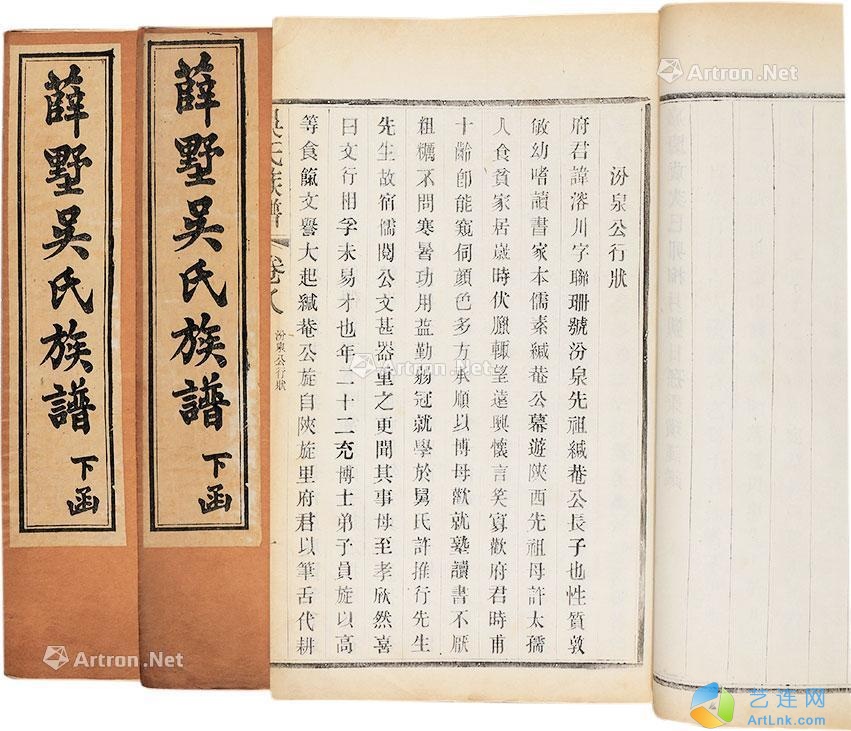 汾泉公行狀
府君諱溶川字聯珊號汾泉先祖緘菴公長子也性質敦
敏幼嗜讀書家本儒素緘菴公幕遊陝西先祖母許太孺
人食貧家居歲時伏臘輒望遠興懷言笑寡歡府君時甫
十齡卽能窺伺顏色多方承順以博母歡就塾讀書不厭
粗糲不問寒暑功用益勤弱冠就學於舅氏許推行先生
先生故宿儒閱公文甚器重之更聞其事母至孝欣然喜
曰文行相孚未易才也年二十二充博士弟子員旋以高
等食餼文譽大起緘菴公旋自陝旋里府君以筆舌代耕
吳氏族譜 卷八 汾泉公行狀 一
薛墅吳氏族譜 下函
薛墅吳氏族譜 下函
Artron.Net
Artron.Net
Artron.Net
Artron.Net
艺连网
ArtLnk.com